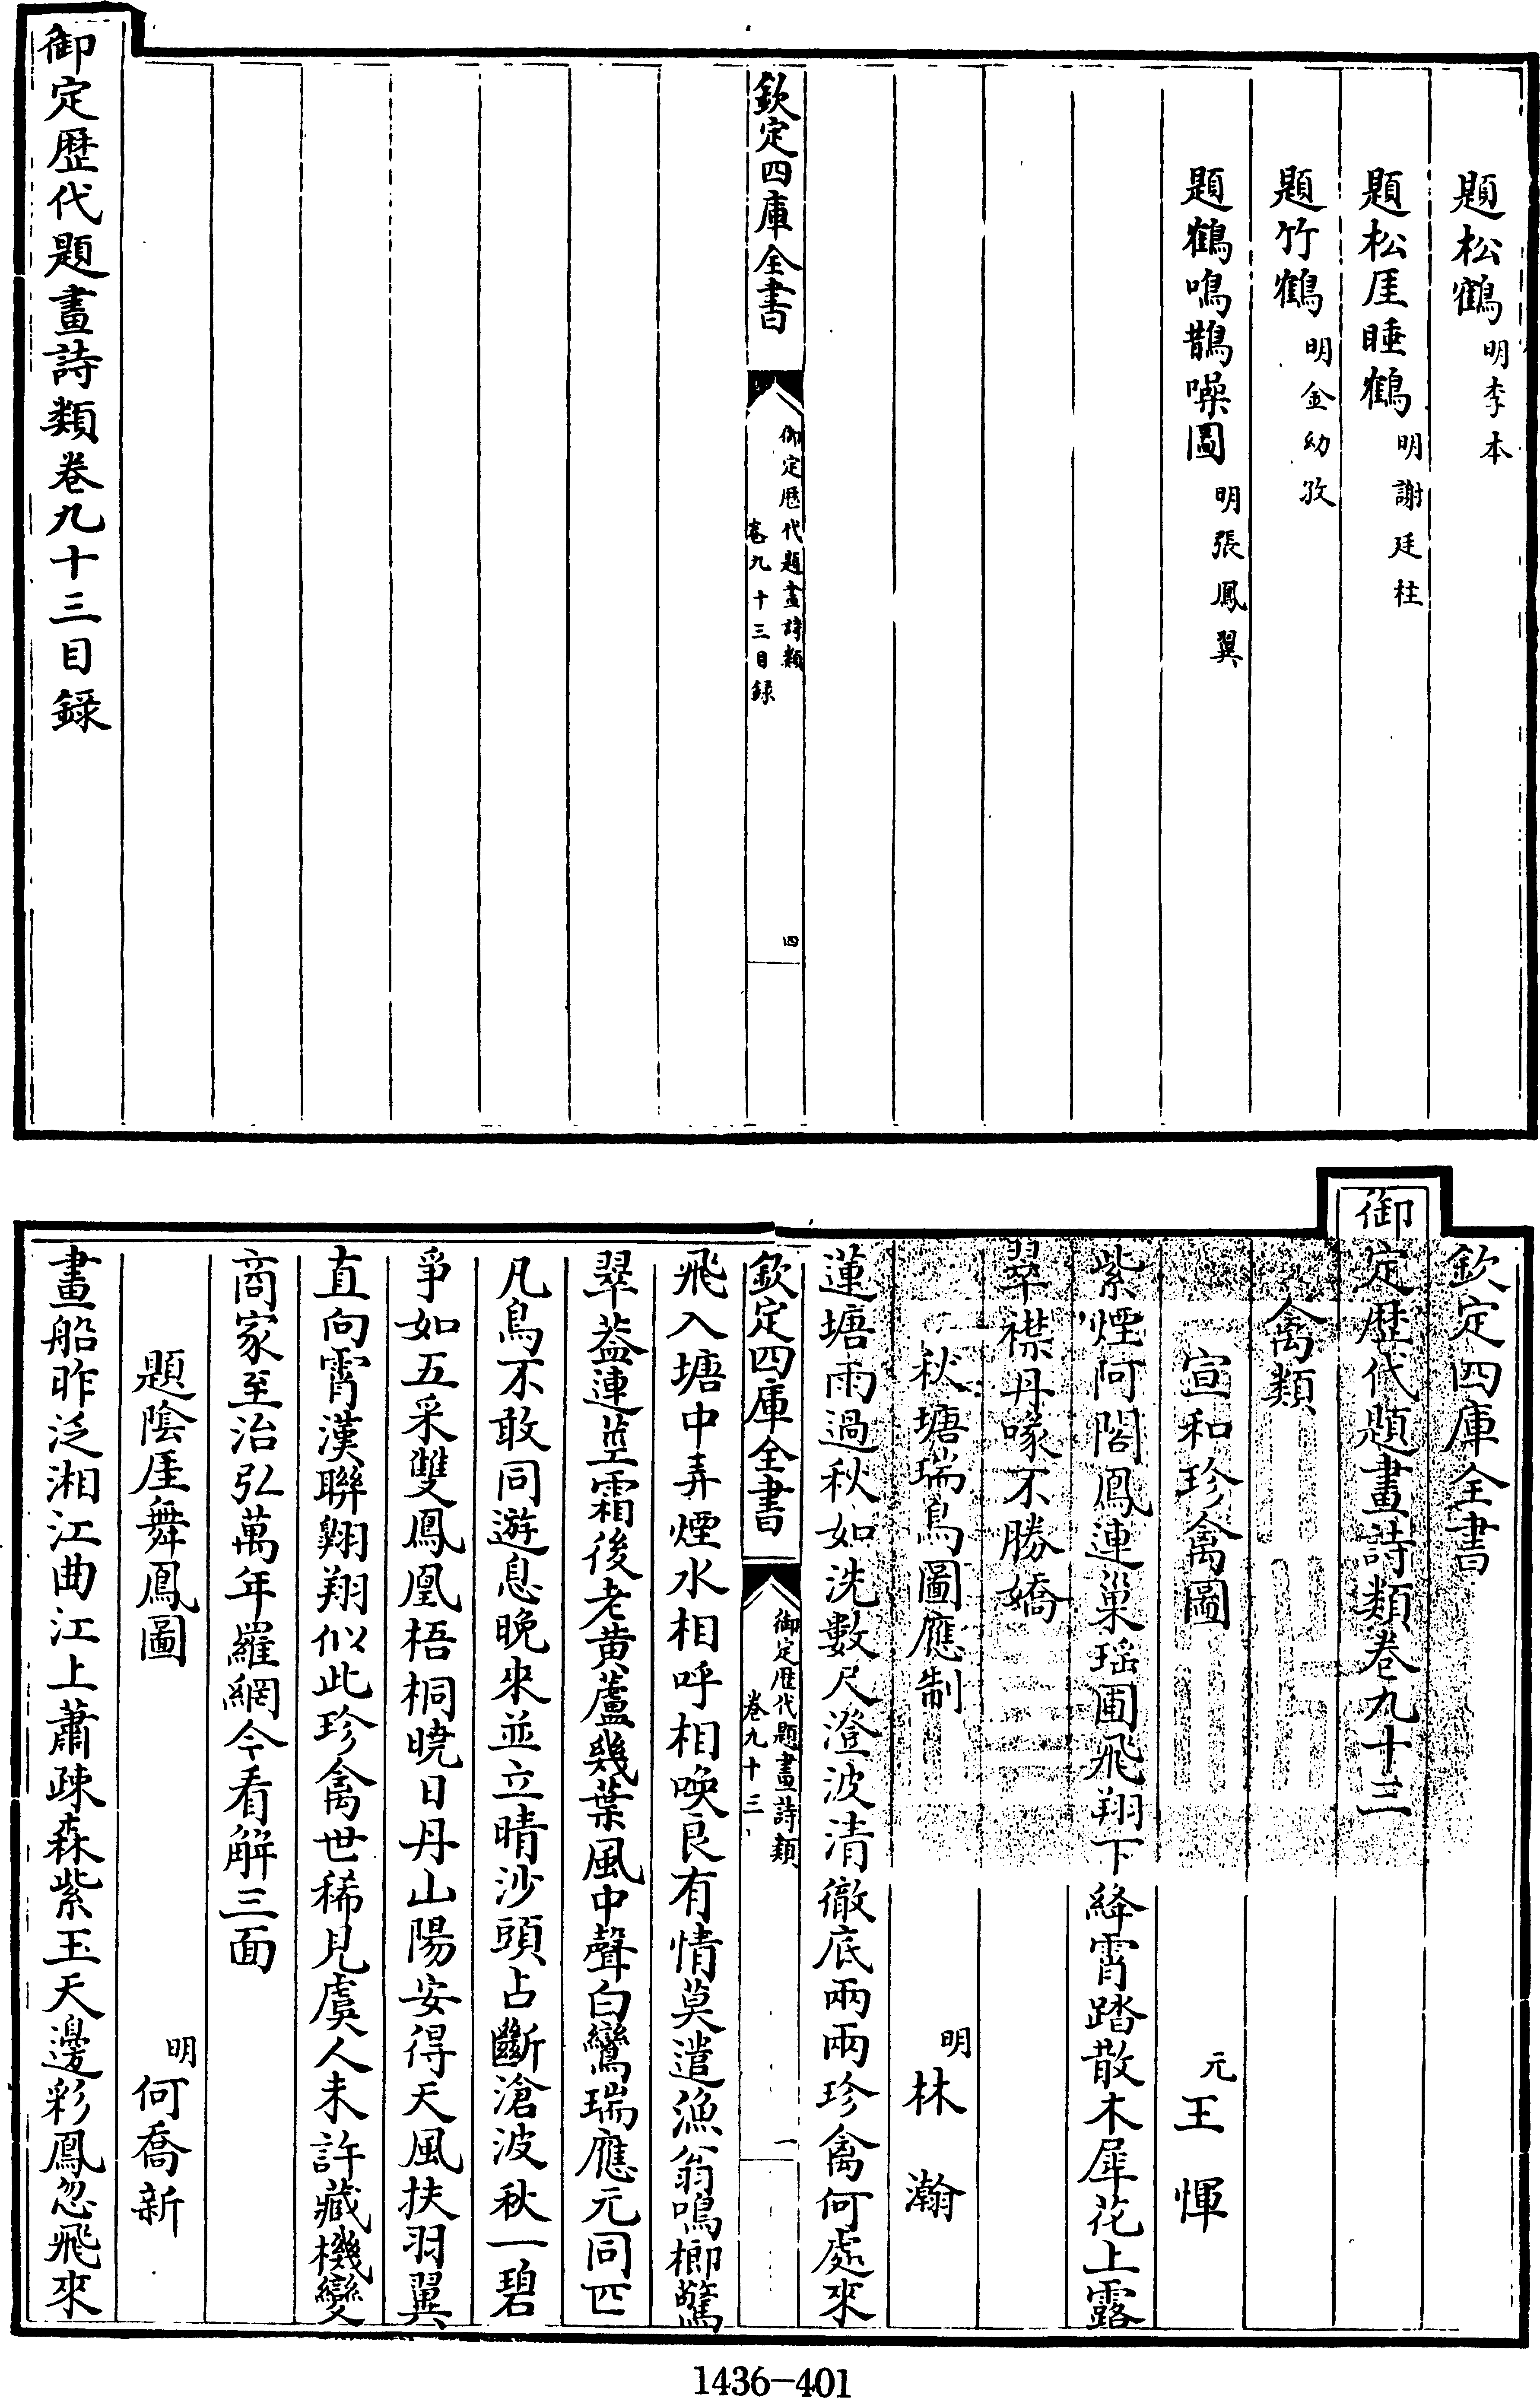 題松鶴明李本
題松厓睡鶴明謝廷柱
題竹鶴明金幼孜
題鶴鳴鵲噪圖明張鳳翼
欽定四庫全書
御定歷代題畫詩類
卷九十三目録
四
御定歷代題畫詩類卷九十三目録
欽定四庫全書
御定歷代題畫詩類卷九十三
禽類
宣和珍禽圖 元王惲
紫煙阿閣鳳連巢瑶圃飛翔下絳霄踏散木犀花上露
翠襟丹喙不勝嬌
秋塘瑞鳥圖應制 明林瀚
蓮塘雨過秋如洗數尺澄波清徹底兩兩珍禽何處來
欽定四庫全書
御定歷代題畫詩類
卷九十三
一
飛入塘中弄煙水相呼相喚良有情莫遣漁翁鳴榔驚
翠葢連莖霜後老黄蘆幾葉風中聲白鸞瑞應元同匹
凡鳥不敢同遊息晚來並立晴沙頭占斷滄波秋一碧
爭如五采雙鳳凰梧桐曉日丹山陽安得天風扶羽翼
直向霄漢聯翺翔似此珍禽世稀見虞人未許藏機變
商家至治弘萬年羅網今看解三面
題陰厓舞鳳圖 明何喬新
畫船昨泛湘江曲江上蕭疎森紫玉天邊彩鳳忽飛來
1436-401